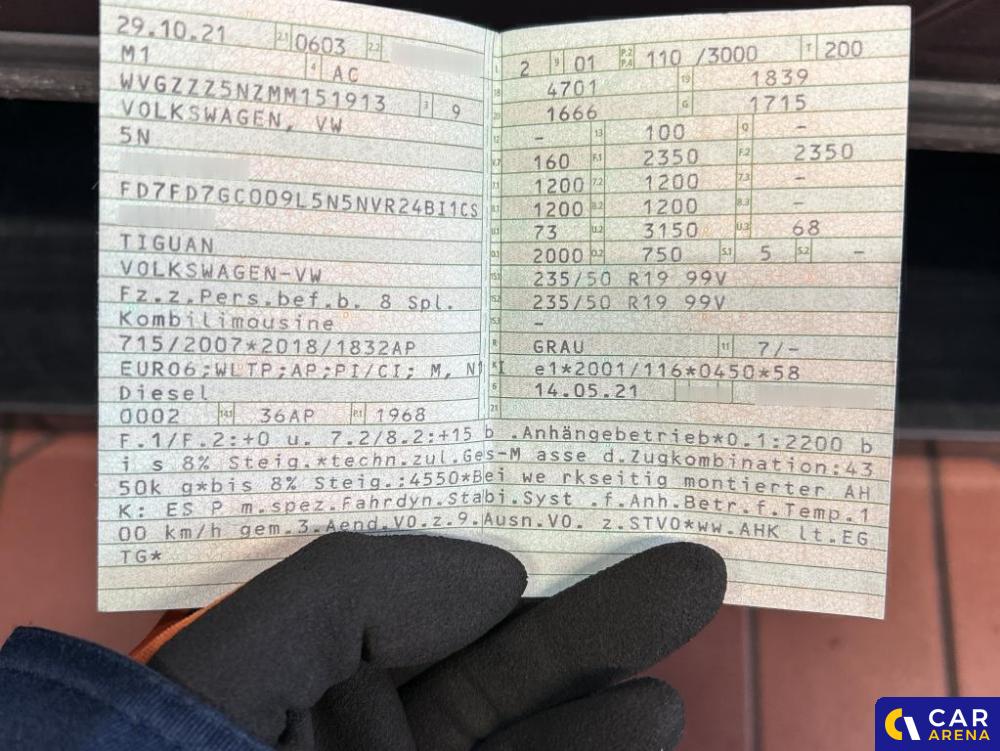 29.10.21 2.1 0603 2.2
M1 4 AC
WVGZZZ5NZMM151913 3 9
VOLKSWAGEN, VW
5N
FD7FD7GC009L5N5NVR24BI1CS
TIGUAN
VOLKSWAGEN-VW
Fz.z.Pers.bef.b. 8 Spl.
Kombilimousine
715/2007*2018/1832AP
EURO6;WLTP;AP;PI/CI; M, N1 I
Diesel
0002 14.1 36AP P.1 1968
L 2 9 01 P.2 P.4 110 /3000 T 200
18 4701 19 1839
20 1666 G 1715
12 - 13 100 Q -
V.7 160 F.1 2350 F.2 2350
7.1 1200 7.2 1200 7.3 -
8.1 1200 8.2 1200 8.3 -
U.1 73 U.2 3150 U.3 68
O.1 2000 O.2 750 S.1 5 S.2 -
15.1 235/50 R19 99V
15.2 235/50 R19 99V
15.3 -
R GRAU 11 7/-
K e1*2001/116*0450*58
6 14.05.21
21
F.1/F.2:+0 u. 7.2/8.2:+15 b .Anhängebetrieb*0.1:2200 b
i s 8% Steig.*techn.zul.Ges-M asse d.Zugkombination:43
50k g*bis 8% Steig.:4550*Bei we rkseitig montierter AH
K: ES P m.spez.Fahrdyn.Stabi.Syst .f.Anh.Betr.f.Temp.1
00 km/h gem.3.Aend.VO.z.9.Ausn.VO. z.STVO*ww.AHK lt.EG
TG*
CAR
ARENA